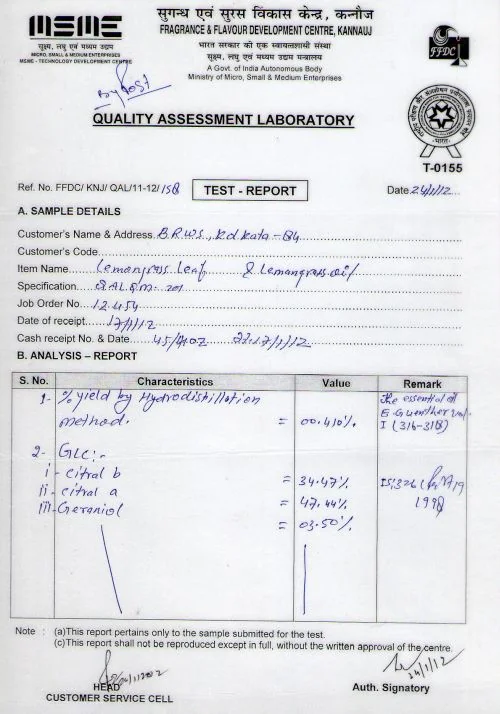 msme
सूक्ष्म, लघु एवं मध्यम उद्यम
MICRO, SMALL & MEDIUM ENTERPRISES
MSME - TECHNOLOGY DEVELOPMENT CENTRE
सुगन्ध एवं सुरस विकास केन्द्र, कन्नौज
FRAGRANCE & FLAVOUR DEVELOPMENT CENTRE, KANNAUJ
भारत सरकार की एक स्वायत्तशासी संस्था
सूक्ष्म, लघु एवं मध्यम उद्यम मन्त्रालय
A Govt. of India Autonomous Body
Ministry of Micro, Small & Medium Enterprises
FFDC
By Post
QUALITY ASSESSMENT LABORATORY
T-0155
Ref. No. FFDC/ KNJ/ QAL/11-12/158 TEST - REPORT Date 24/1/12
A. SAMPLE DETAILS
Customer's Name & Address B.R.W.S., Kolkata-84
Customer's Code
Item Name Lemongrass Leaf & Lemongrass oil
Specification QAL
Job Order No. 12454
Date of receipt 17/1/12
Cash receipt No. & Date 17/1/12
B. ANALYSIS – REPORT
S. No. Characteristics Value Remark
1- % yield by Hydrodistillation The essential oil
method. = 00.410% E. Guenther
I (316-318)
2- GLC:-
i - citral b = 34.47% IS:326
ii - citral a = 47.44% 1998
iii - Geraniol = 03.50%
Note : (a)This report pertains only to the sample submitted for the test.
(c)This report shall not be reproduced except in full, without the written approval of the centre.
24/1/12
HEAD
CUSTOMER SERVICE CELL
Auth. Signatory